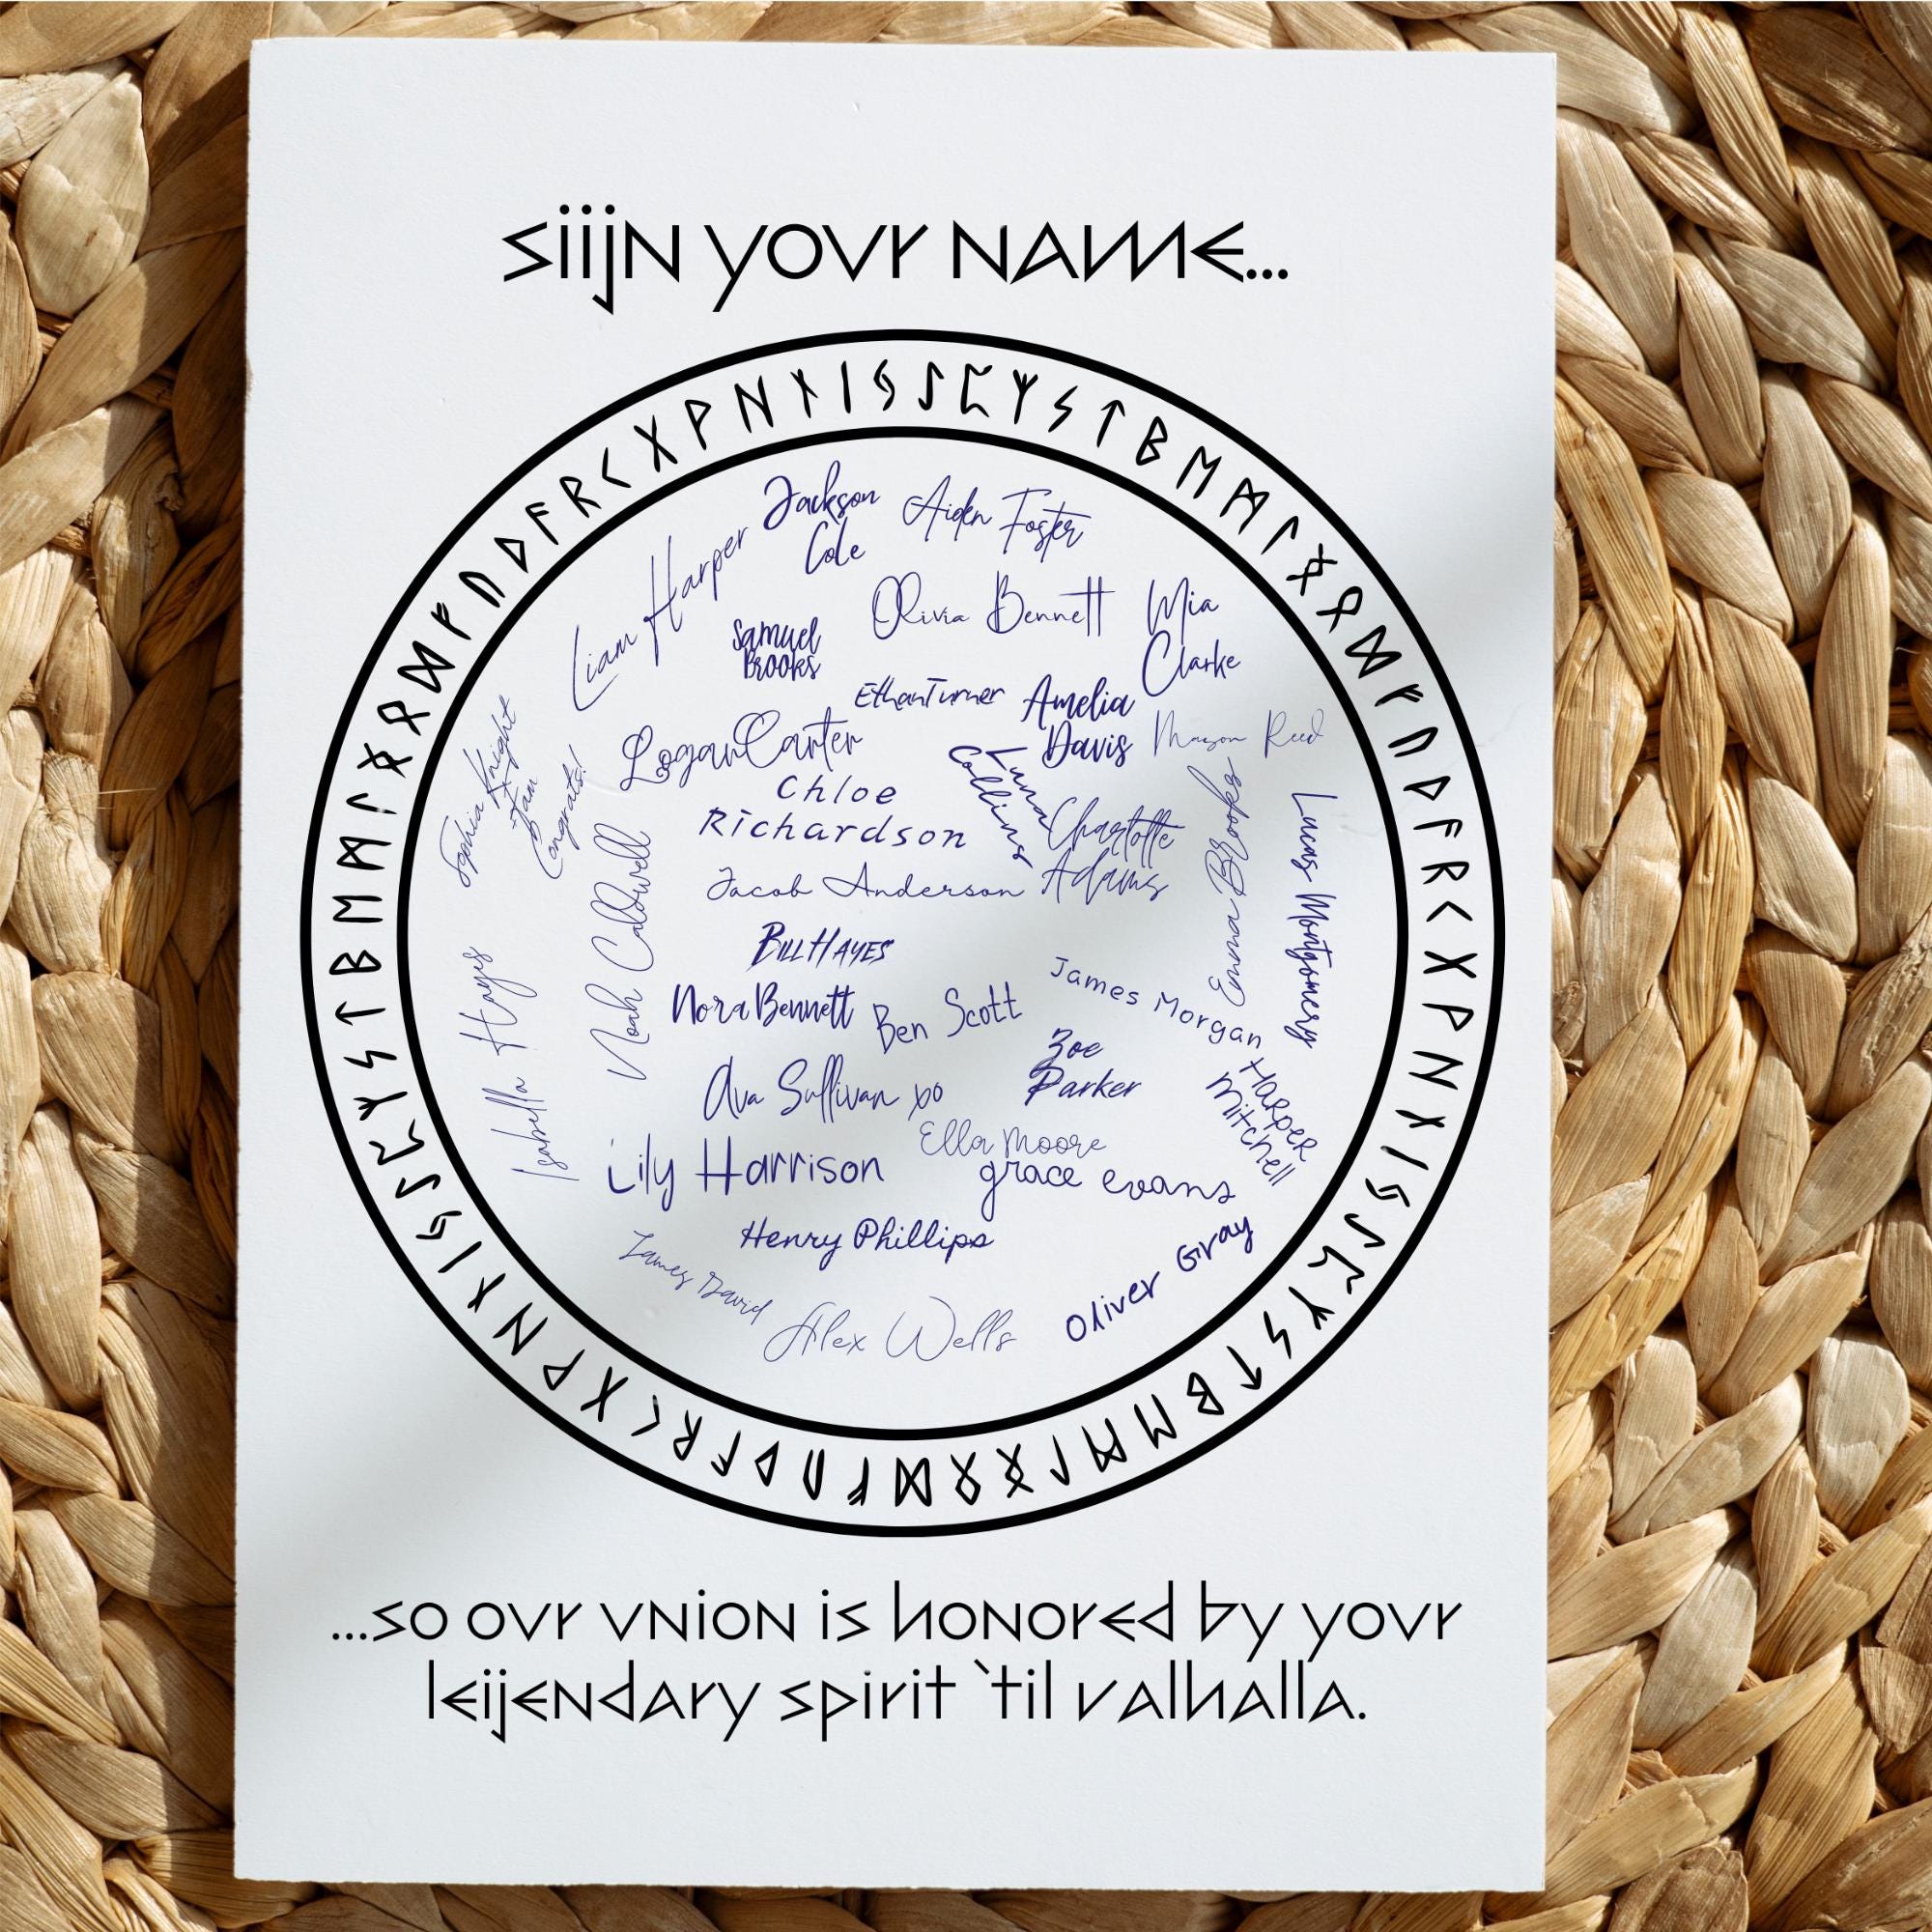 sign your name...
ᚠᚢᚦᚨᚱᚲᚷᚹᚺᚾᛁᛃᛇᛈᛉᛊᛏᛒᛖᛗᛚᛝᛟᛞᚠᚢᚦᚨᚱᚲᚷᚹᚺᚾᛁᛃᛇᛈᛉᛊᛏᛒᛖᛗᛚᛝᛟᛞᚠᚢᚦᚨᚱᚲᚷᚹᚺᚾᛁᛃᛇᛈᛉᛊᛏᛒᛖᛗᛚᛝᛟᛞ
Jackson
Cole
Aiden Foster
Liam Harper
Olivia Bennett
Mia
Clarke
Samuel
Brooks
Ethan Turner
Amelia
Davis
Mason Reed
Logan Carter
Sophia Knight
& fam
Congrats!
Luna
Collins
Chloe
Richardson
Charlotte
Adams
Emma Brookes
Lucas Montgomery
Noah Caldwell
Jacob Anderson
Bill Hayes
Isabella Hayes
Nora Bennett
Ben Scott
James Morgan
Zoe
Parker
Harper
Mitchell
Ava Sullivan xo
Ella Moore
Lily Harrison
grace evans
Henry Phillips
James David
Oliver Gray
Alex Wells
...so our union is honored by your
legendary spirit `til valhalla.